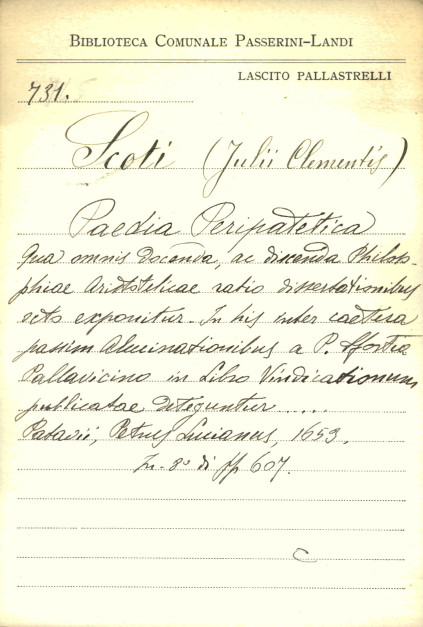 BIBLIOTECA COMUNALE PASSERINI-LANDI
LASCITO PALLASTRELLI
731.
Scoti (Julii Clementis)
Paedia Peripatetica
Qua omnis docenda, ac discenda Philoso-
phiae Aristoteticae ratio dissertationibus
octo exponitur. In his inter caetera
passim Alucinationibus a P. Sfortia
Pallavicino in Libro Vindicationum
publicatae deteguntur .....
Patavii, Petrus Lucianus, 1653.
In-8° di pp 607.
C